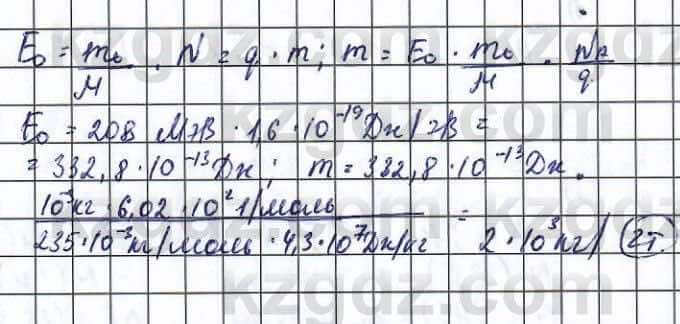 E₀ = m₀/M · N = q · m; m = E₀ · m₀/M · Nₐ/q
E₀ = 208 МэВ · 1,6 · 10⁻¹⁹ Дж/эВ =
= 332,8 · 10⁻¹³ Дж; m = 332,8 · 10⁻¹³ Дж ·
10⁻³ кг · 6,02 · 10² 1/моль / 235 · 10⁻³ кг/моль · 4,3 · 10⁷ Дж/кг = 2 · 10³ кг/ (2т.)
kzgdz.com